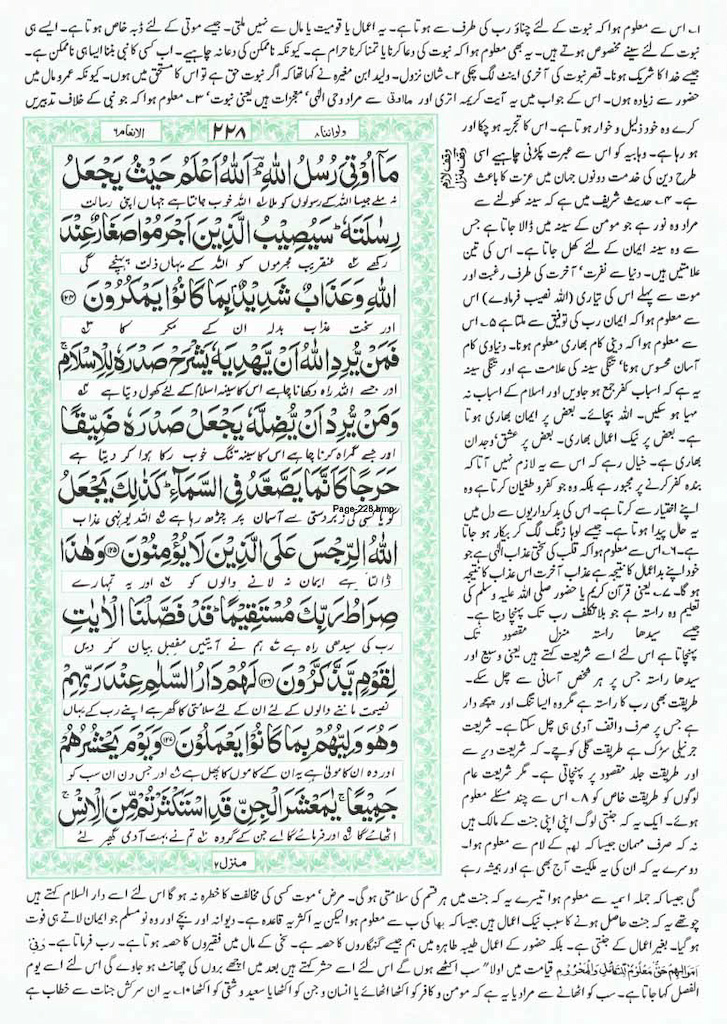 ۱۔ اس سے معلوم ہوا کہ نبوت کے لئے چناؤ رب کی طرف سے ہوتا ہے۔ یہ اعمال یا قومیت یا مال سے نہیں ملتی۔ جیسے موتی کے لئے ڈبہ خاص ہوتا ہے۔ ایسے ہی
نبوت کے لئے سینے مخصوص ہوتے ہیں۔ یہ بھی معلوم ہوا کہ نبوت کی دعا کرنا یا تمنا کرنا حرام ہے۔ کیونکہ ناممکن کی دعا نہ چاہیے۔ اب کسی کا نبی بننا ایسا ہی ناممکن ہے۔
جیسے خدا کا شریک ہونا۔ قصر نبوت کی آخری اینٹ لگ چکی ۲۔ شان نزول۔ ولید ابن مغیرہ نے کہا تھا کہ اگر نبوت حق ہے تو اس کا مستحق میں ہوں۔ کیونکہ عمر و مال میں
حضور سے زیادہ ہوں۔ اس کے جواب میں یہ آیت کریمہ اتری اور سے مراد وحی الٰہی معجزات ہیں یعنی نبوت ۳۔ معلوم ہوا کہ جو نبی کے خلاف تدبیریں
کرے وہ خود ذلیل و خوار ہوتا ہے۔ اس کا تجربہ ہو چکا اور
ہو رہا ہے۔ وہابیہ کو اس سے عبرت پکڑنی چاہیے اسی
طرح دین کی خدمت دونوں جہان میں عزت کا باعث
ہے۔ ۴۔ حدیث شریف میں ہے کہ سینہ کھولنے سے
مراد وہ نور ہے جو مومن کے سینہ میں ڈالا جاتا ہے جس
سے وہ سینہ ایمان کے لئے کھل جاتا ہے۔ اس کی تین
علامتیں ہیں۔ دنیا سے نفرت‘ آخرت کی طرف رغبت اور
موت سے پہلے اس کی تیاری (اللہ نصیب فرماوے) اس
سے معلوم ہوا کہ ایمان رب کی توفیق سے ملتا ہے ۵۔ اس
سے معلوم ہوا کہ دینی کام بھاری معلوم ہونا۔ دنیاوی کام
آسان محسوس ہونا‘ تنگی سینہ کی علامت ہے اور تنگی سینہ
یہ ہے کہ اسباب کفر جمع ہو جاویں اور اسلام کے اسباب نہ
مہیا ہو سکیں۔ اللہ بچائے۔ بعض پر ایمان بھاری ہوتا
ہے۔ بعض پر نیک اعمال بھاری۔ بعض پر عشق‘ وجدان
بھاری ہے۔ خیال رہے کہ اس سے یہ لازم نہیں آتا کہ
بندہ کفر کرنے پر مجبور ہے بلکہ وہ جو کفر و طغیان کرتا ہے وہ
اپنے اختیار سے کرتا ہے۔ اس کی بدکرداریوں سے دل میں
یہ حال پیدا ہوتا ہے۔ جیسے لوہا زنگ لگ کر بیکار ہو جاتا
ہے۔ ۶۔ اس سے معلوم ہوا کہ قلب کی سختی عذاب الٰہی ہے جو
خود اپنے بد اعمال کا نتیجہ ہے عذاب آخرت اس عذاب کا نتیجہ
ہو گا۔ ۷۔ یعنی قرآن کریم یا حضور صلی اللہ علیہ وسلم کی
تعلیم وہ راستہ ہے جو بلاتکلف رب تک پہنچا دیتا ہے۔
جیسے سیدھا راستہ منزل مقصود تک
پہنچاتا ہے اس لئے اسے شریعت کہتے ہیں یعنی وسیع اور
سیدھا راستہ جس پر ہر شخص آسانی سے چل سکے۔
طریقت بھی رب کا راستہ ہے مگر وہ ایسا تنگ اور پیچ دار
ہے جس پر صرف واقف آدمی ہی چل سکتا ہے۔ شریعت
جرنیلی سڑک ہے طریقت گلی کوچے۔ کہ شریعت دیر سے
اور طریقت جلد مقصود پر پہنچاتی ہے۔ مگر شریعت عام
لوگوں کو طریقت خاص کو ۸۔ اس سے چند مسئلے معلوم
ہوئے۔ ایک یہ کہ جنتی لوگ اپنی اپنی جنت کے مالک ہیں
نہ کہ صرف مہمان جیسا کہ لھم کے لام سے معلوم ہوا۔
دوسرے یہ کہ ان کی یہ ملکیت آج بھی ہے اور ہمیشہ رہے
ولواننا ۸
۲۲۸
الانعام ۶
مَآ اُوْتِیَ رُسُلُ اللّٰهِ ؕۘ اَللّٰهُ اَعْلَمُ حَیْثُ یَجْعَلُ
نہ ملے جیسا اللہ کے رسولوں کو ملا اللہ خوب جانتا ہے جہاں اپنی رسالت
رِسٰلَتَهٗ ؕ سَیُصِیْبُ الَّذِیْنَ اَجْرَمُوْا صَغَارٌ عِنْدَ
رکھے عنقریب مجرموں کو اللہ کے یہاں ذلت پہنچے گی
اللّٰهِ وَعَذَابٌ شَدِیْدٌۢ بِمَا كَانُوْا یَمْكُرُوْنَ ﴿۱۲۴﴾
اور سخت عذاب بدلہ ان کے مکر کا
فَمَنْ یُّرِدِ اللّٰهُ اَنْ یَّهْدِیَهٗ یَشْرَحْ صَدْرَهٗ لِلْاِسْلَامِ ۚ
اور جسے اللہ راہ دکھانا چاہے اس کا سینہ اسلام کے لئے کھول دیتا ہے
وَمَنْ یُّرِدْ اَنْ یُّضِلَّهٗ یَجْعَلْ صَدْرَهٗ ضَیِّقًا
اور جسے گمراہ کرنا چاہے اس کا سینہ تنگ خوب رکا ہوا کر دیتا ہے
حَرَجًا كَاَنَّمَا یَصَّعَّدُ فِی السَّمَآءِ ؕ كَذٰلِكَ یَجْعَلُ
گویا کسی کی زبردستی سے آسمان پر چڑھ رہا ہے اللہ یونہی عذاب
Page-228.bmp
اللّٰهُ الرِّجْسَ عَلَی الَّذِیْنَ لَا یُؤْمِنُوْنَ ﴿۱۲۵﴾ وَهٰذَا
ڈالتا ہے ایمان نہ لانے والوں کو اور یہ تمہارے
صِرَاطُ رَبِّكَ مُسْتَقِیْمًا ؕ قَدْ فَصَّلْنَا الْاٰیٰتِ
رب کی سیدھی راہ ہے ہم نے آیتیں مفصل بیان کر دیں
لِقَوْمٍ یَّذَّكَّرُوْنَ ﴿۱۲۶﴾ لَهُمْ دَارُ السَّلٰمِ عِنْدَ رَبِّهِمْ
نصیحت ماننے والوں کے لئے ان کے لئے سلامتی کا گھر ہے اپنے رب کے یہاں
وَهُوَ وَلِیُّهُمْ بِمَا كَانُوْا یَعْمَلُوْنَ ﴿۱۲۷﴾ وَیَوْمَ یَحْشُرُهُمْ
اور وہ ان کا مولٰی ہے یہ ان کے کاموں کا پھل ہے اور جس دن ان سب کو
جَمِیْعًا ۚ یٰمَعْشَرَ الْجِنِّ قَدِ اسْتَكْثَرْتُمْ مِّنَ الْاِنْسِ ۚ
اٹھائے گا اور فرمائے گا اے جن کے گروہ تم نے بہت آدمی گھیر لئے
منزل ۲
گی جیسا کہ جملہ اسمیہ سے معلوم ہوا تیسرے یہ کہ جنت میں ہر قسم کی سلامتی ہو گی۔ مرض‘ موت کسی کی مخالفت کا خطرہ نہ ہو گا اس لئے اسے دار السلام کہتے ہیں
چوتھے یہ کہ جنت حاصل ہونے کا سبب نیک اعمال ہیں جیسا کہ بما کی ب سے معلوم ہوا لیکن یہ اکثریہ قاعدہ ہے۔ دیوانہ اور بچے اور وہ نو مسلم جو ایمان لاتے ہی فوت
ہو گیا۔ بغیر اعمال کے جنتی ہے۔ بلکہ حضور کے اعمال طیبہ طاہرہ میں ہم جیسے گنہگاروں کا حصہ ہے۔ سخی کے مال میں فقیروں کا حصہ ہوتا ہے۔ رب فرماتا ہے۔ وَفِیْ
اَمْوَالِهِمْ حَقٌّ مَّعْلُوْمٌ لِّلسَّآئِلِ وَالْمَحْرُوْمِ قیامت میں اولاً سب اکٹھے ہوں گے اس لئے اسے حشر کہتے ہیں بعد میں اچھے بروں کی چھانٹ ہو جاوے گی اس لئے اسے یوم
الفصل کہا جاتا ہے۔ سب کو اٹھانے سے مراد یا یہ ہے کہ مومن و کافر کو اکٹھا اٹھائے یا انسان و جن کو اکٹھا یا سعید و شقی کو اکٹھا ۱۰۔ یہ ان سرکش جنات سے خطاب ہے